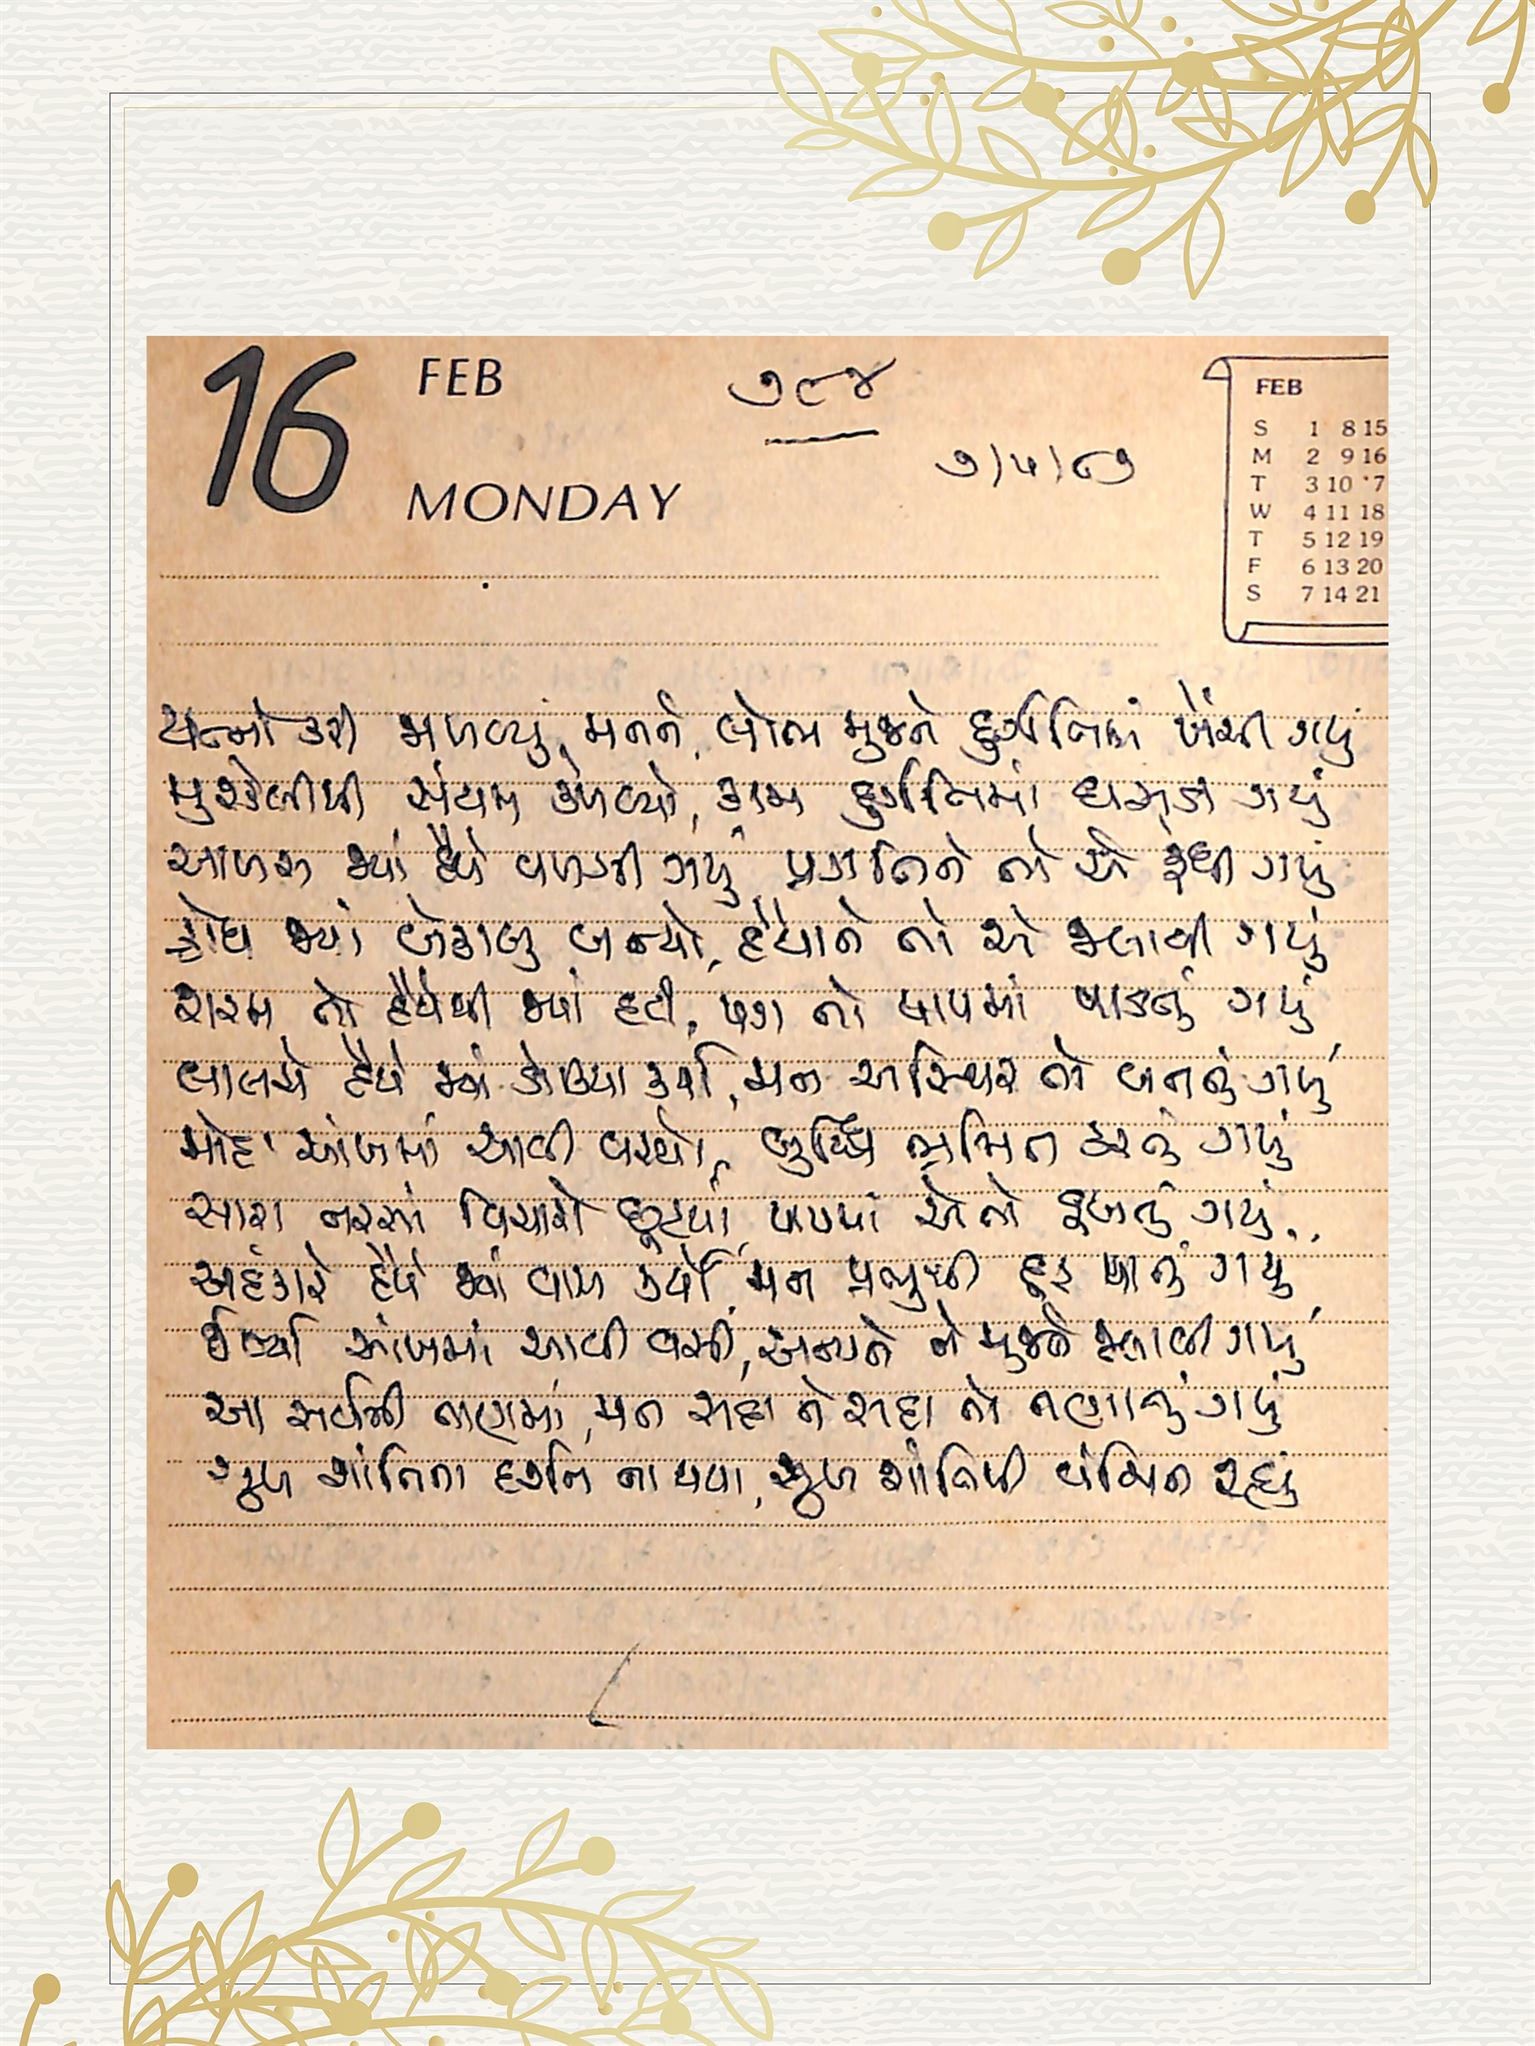 16
FEB
MONDAY
૭૯૪
૭/૫/૮૭
FEB
S 1 8 15
M 2 9 16
T 3 10 17
W 4 11 18
T 5 12 19
F 6 13 20
S 7 14 21
યત્નો કરી મળવ્યું, મનને, લોભ મુજને દુર્ગતિમાં ખેંચી ગયું
મુશ્કેલીથી સંયમ કેળવ્યો, કામ દુર્ગતિમાં ઘસડી ગયું
આળસ જ્યાં હૈયે વળગી ગયું, પ્રગતિને તો એ રૂંધી ગયું
ક્રોધ જ્યાં બેકાબુ બન્યો, હૈયાને તો એ જલાવી ગયું
શરમ તો હૈયેથી જ્યાં હટી, પગ તો પાપમાં પાડતું ગયું
લાલચે હૈયે જ્યાં ડોકિયા કર્યા, મન અસ્થિર તો બનતું ગયું
મોહ આંખમાં આવી વસ્યો, બુદ્ધિ ભ્રમિત કરતું ગયું
સારા નરસાં વિચારો છૂટયાં, પાપમાં એ તો ડૂબતું ગયું..
અહંકારે હૈયે જ્યાં વાસ કર્યો, મન પ્રભુથી દૂર થાતું ગયું
ઈર્ષ્યા આંખમાં આવી વસી, અન્યને ને મુજને જલાવી ગયું
આ સર્વેની તાણમાં, મન સદા ને સદા તો તણાતું ગયું
સુખ શાંતિના દર્શન ના થયા, સુખ શાંતિથી વંચિત રહ્યું